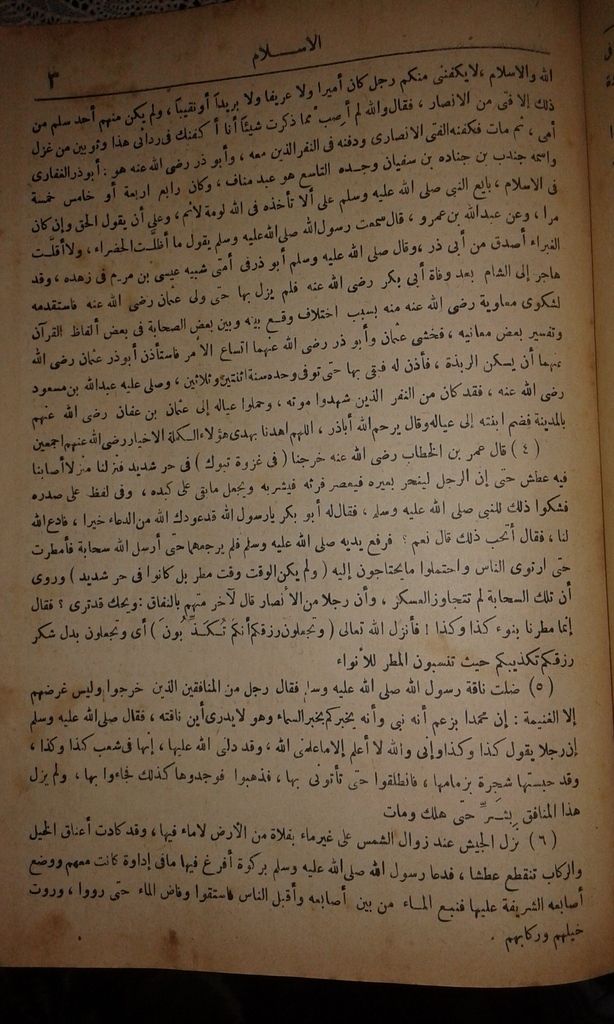 الاســـلام
٣
الله والاسلام ، لا يكفننى منكم رجل كان أميرا ولا عريفا ولا بريداً أونقيباً ، ولم يكن منهم أحد سلم من
ذلك إلا فتى من الانصار ، فقال والله لم أصب مما ذكرت شيئاً أنا أكفنك فى ردائى هذا وثوبين من غزل
أمى ، ثم مات فكفنه الفتى الانصارى ودفنه فى النفر الذين معه ، وأبو ذر رضى الله عنه هو : أبوذر الغفارى
واسمه جندب بن جناده بن سفيان وجـده التاسع هو عبد مناف ، وكان رابع اربعة أو خامس خمسة
فى الاسلام ، بايع النبى صلى الله عليه وسلم على ألا تأخذه فى الله لومة لائم ، وعلى أن يقول الحق وإن كان
مرا ، وعن عبدالله بن عمرو ، قال سمعت رسول الله صلى الله عليه وسلم يقول ما أظلت الخضراء ، ولا أقلت
الغبراء أصدق من أبى ذر ، وقال صلى الله عليه وسلم أبو ذر فى أمتى شبيه عيسى بن مريم فى زهده ، وقد
هاجر إلى الشام بعد وفاة أبى بكر رضى الله عنه فلم يزل بها حتى ولى عثمان رضى الله عنه فاستقدمه
لشكوى معاوية رضى الله عنه منه بسبب اختلاف وقع بينه وبين بعض الصحابة فى بعض ألفاظ القرآن
وتفسير بعض معانيه ، فخشى عثمان وأبو ذر رضى الله عنهما اتساع الأمر فاستأذن أبوذر عثمان رضى الله
عنهما أن يسكن الربذة ، فأذن له فبقى بها حتى توفى وحده سنة اثنتين وثلاثين ، وصلى عليه عبدالله بن مسعود
رضى الله عنه ، فقد كان من النفر الذين شهدوا موته ، وحملوا عياله إلى عثمان بن عفان رضى الله عنهم
بالمدينة فضم ابنته إلى عياله وقال يرحم الله أباذر ، اللهم اهدنا بهدى هؤلاء الكملة الاخيار رضى الله عنهم اجمعين
( ٤ ) قال عمر بن الخطاب رضى الله عنه خرجنا ( فى غزوة تبوك ) فى حر شديد فنزلنا منزلا أصابنا
فيه عطش حتى إن الرجل لينحر بعيره فيعصر فرثه فيشربه ويجعل مابقى على كبده ، وفى لفظ على صدره
فشكوا ذلك للنبى صلى الله عليه وسلم ، فقال له أبو بكر يارسول الله قد عودك الله من الدعاء خيرا ، فادع الله
لنا ، فقال أتحب ذلك قال نعم ؟ فرفع يديه صلى الله عليه وسلم فلم يرجعهما حتى أرسل الله سحابة فأمطرت
حتى ارتوى الناس واحتملوا مايحتاجون إليه ( ولم يكن الوقت وقت مطر بل كانوا فى حر شديد ) وروى
أن تلك السحابة لم تتجاوز العسكر ، وأن رجلا من الأنصار قال لآخر متهم بالنفاق : ويحك قد ترى ؟ فقال
إنما مطرنا بنوء كذا وكذا ! فأنزل الله تعالى ( وتجعلون رزقكم أنكم تُـكَـذِّبُونَ ) أى وتجعلون بدل شكر
رزقكم تكذيبكم حيث تنسبون المطر للأنواء
( ٥ ) ضلت ناقة رسول الله صلى الله عليه وسلم فقال رجل من المنافقين الذين خرجوا وليس غرضهم
إلا الغنيمة : إن محمدا يزعم أنه نبى وأنه يخبركم بخبر السماء وهو لا يدرى أين ناقته ، فقال صلى الله عليه وسلم
إن رجلا يقول كذا وكذا وإنى والله لا أعلم إلا ماعلمنى الله ، وقد دلنى الله عليها ، إنها فى شعب كذا وكذا ،
وقد حبستها شجرة بزمامها ، فانطلقوا حتى تأتونى بها ، فذهبوا فوجدوها كذلك فجاءوا بها ، ولم يزل
هذا المنافق بِشَرٍّ حتى هلك ومات
( ٦ ) نزل الجيش عند زوال الشمس على غير ماء بفلاة من الأرض لا ماء فيها ، وقد كادت أعناق الخيل
والركاب تنقطع عطشا ، فدعا رسول الله صلى الله عليه وسلم بركوة أفرغ فيها مافى إداوة كانت معهم ووضع
أصابعه الشريفة عليها فنبع المـاء من بين أصابعه وأقبل الناس فاستقوا وفاض الماء حتى رووا ، وروت
خيلهم وركابهم .